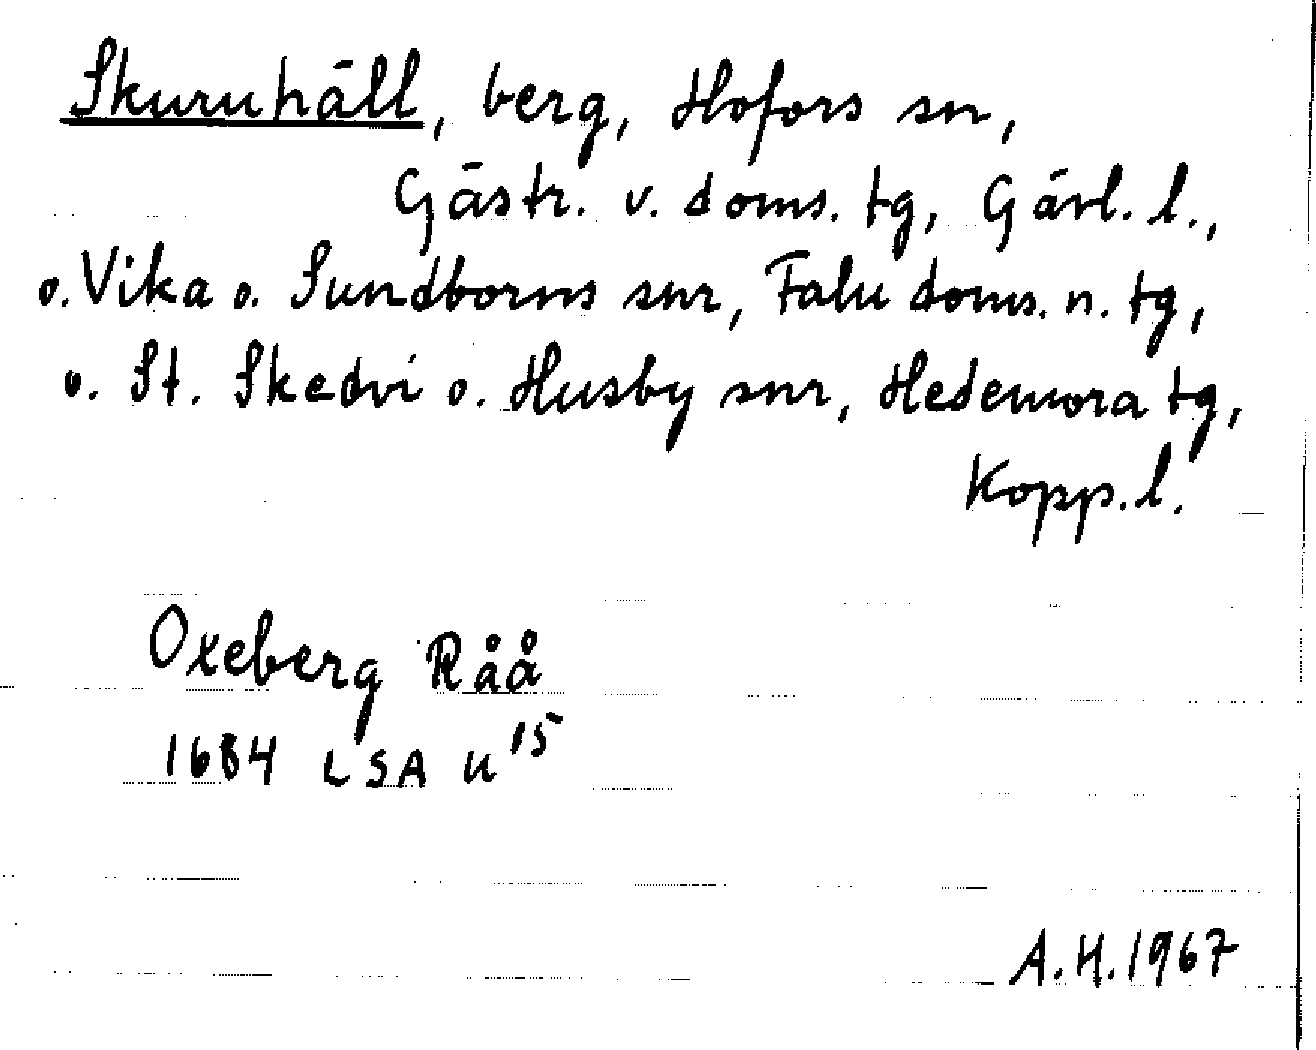 Skuruhäll, berg, Hofors sn,
Gästr. v. doms. tg, Gävl. l.,
o. Vika o. Sundborns snr, Falu doms. n. tg,
o. St. Skedvi o. Husby snr, Hedemora tg,
Kopp. l.
Oxeberg Råå
1684 LSA U 15
A.H. 1967